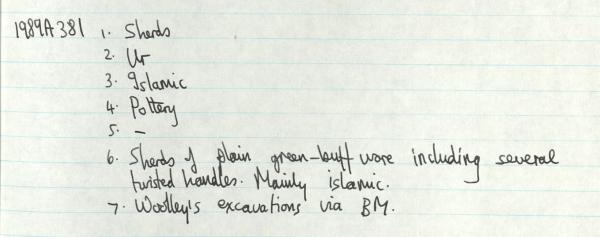 1989A381 1. Sherds
2. Ur
3. Islamic
4. Pottery
5. –
6. Sherds of plain green-buff ware including several
twisted handles. Mainly islamic.
7. Woolley's excavations via BM.